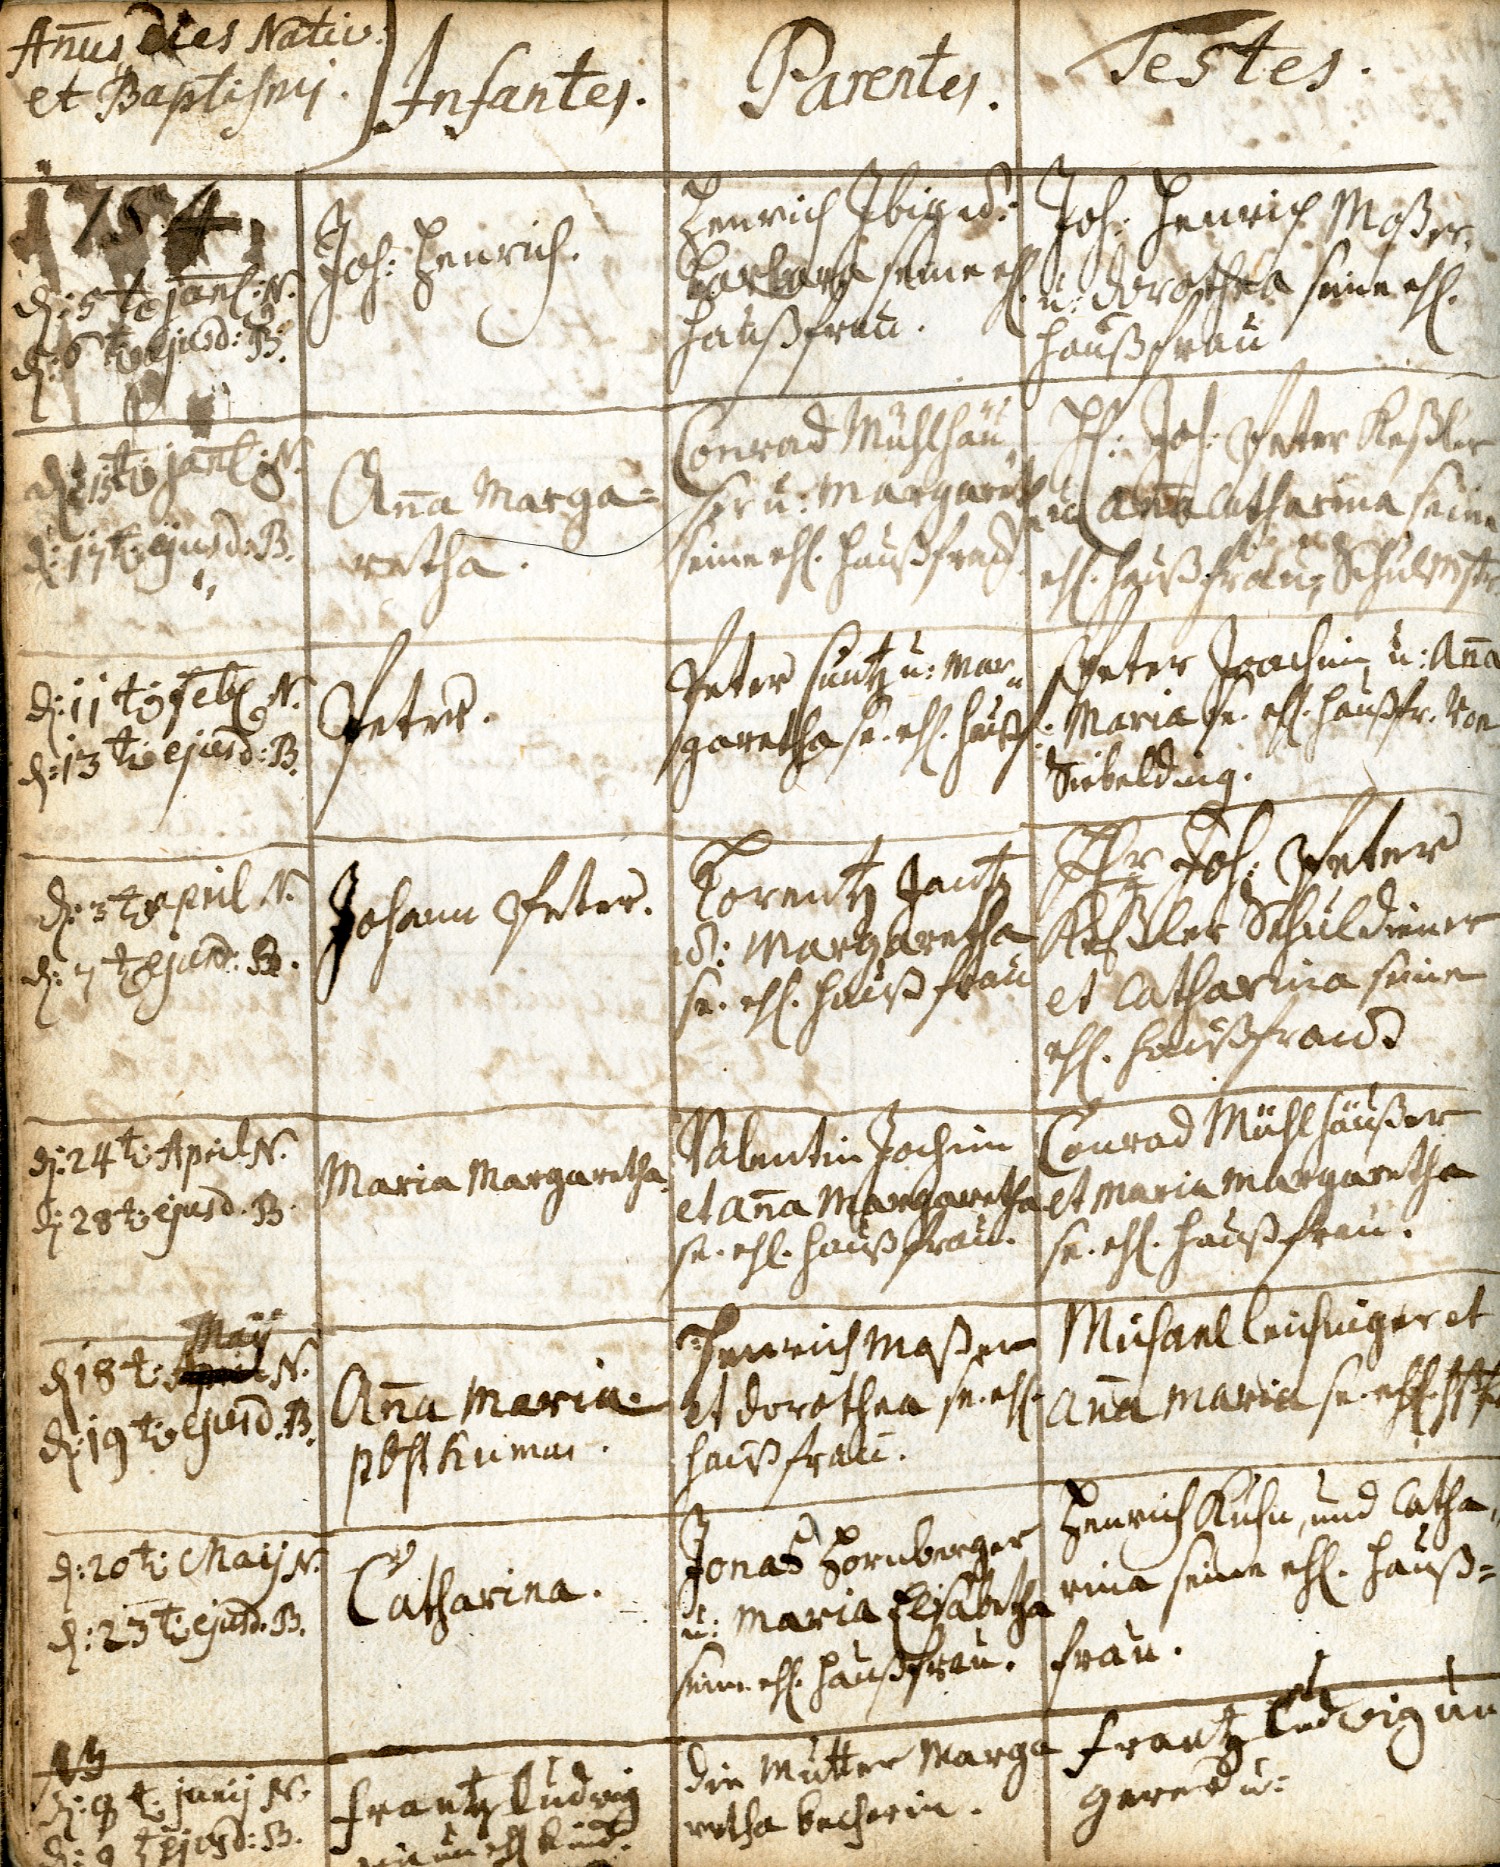 Anus, dies Nativ:
et Baptismj.
Infantes.
Parentes.
Testes.
1754
d: 5t. janl: N.
d: 6t. ejusd: B.
Joh: Henrich.
Henrich Ibig ud:
Barbara seine ehl.
haußfrau.
Joh: Henrich Moßer,
u: dorothea seine ehl.
haußfrau
d: 15t. janl: N.
d: 17t. ejusd: B.
Ana Marga=
retha.
Conrad Mühlhäu
ser u: Margareth
seine ehl. haußfrau.
Joh: Peter Keßler
u Ana Catharina seine
ehl. haußfrau, Schulmstr.
d: 11t. Febl N.
d: 13t. ejusd: B.
Peter.
Peter Cuntz u: Mar
garetha se. ehl. haußf.
Peter Joachim u: Ana
Maria se. ehl. haußfr. Von
Siebelding.
d: 3t. april N.
d: 7t. ejusd: B.
Johann Peter.
Lorentz Jantz
ud: Margaretha
se. ehl. haußfrau
Hr Joh: Peter
Keßler Schuldiener
et Catharina seine
ehl. haußfrau
d: 24t. April N.
d: 28t. ejusd. B.
Maria Margaretha.
Valentin Jochim
et ana Margaretha
se. ehl. haußfrau.
Conrad Mühlhäußer
et Maria Margaretha
se. ehl. haußfrau.
Maÿ
d 18t. April N.
d: 19t. ejusd. B.
Ana Maria
posthuma.
Henrich Moßer
et dorothea se. ehl.
haußfrau.
Michael Leichinger et
ana Maria se. ehl. hßfr
d: 20t. Maij N.
d: 23t. ejusd. B.
Catharina.
Jonas Hornberger
u: Maria Elisabetha
seine ehl. haußfrau.
Henrich Kuhn, und Catha,,
rina seine ehl. hauß=
frau.
NB
d: 8t. junij N.
d: 9t. ejusd: B.
Frantz Ludwig
ein unehl kind.
die Mutter Marga
retha becherin.
Frantz Ludwig un
gerer u: